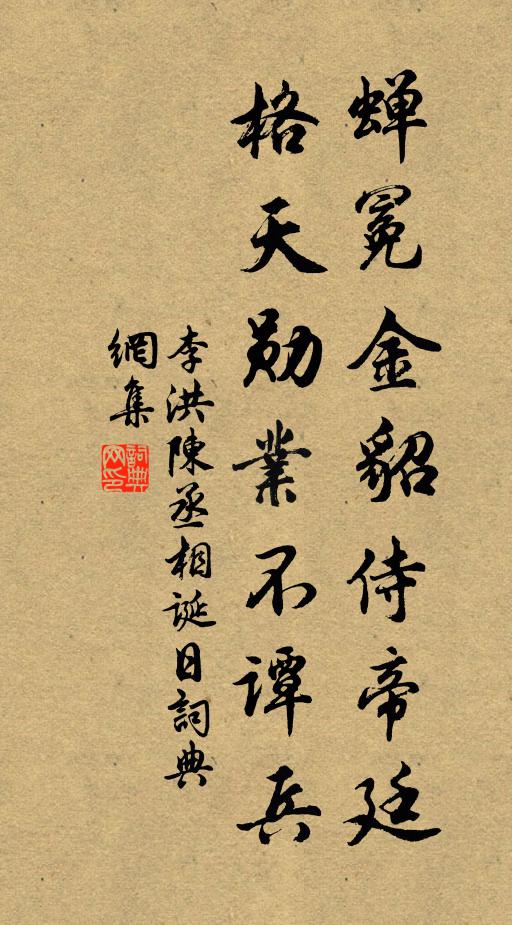 蝉冕金貂侍帝廷
格天勋業不譚兵
李洪陳丞相誕日詞典
網集
詞典
网印